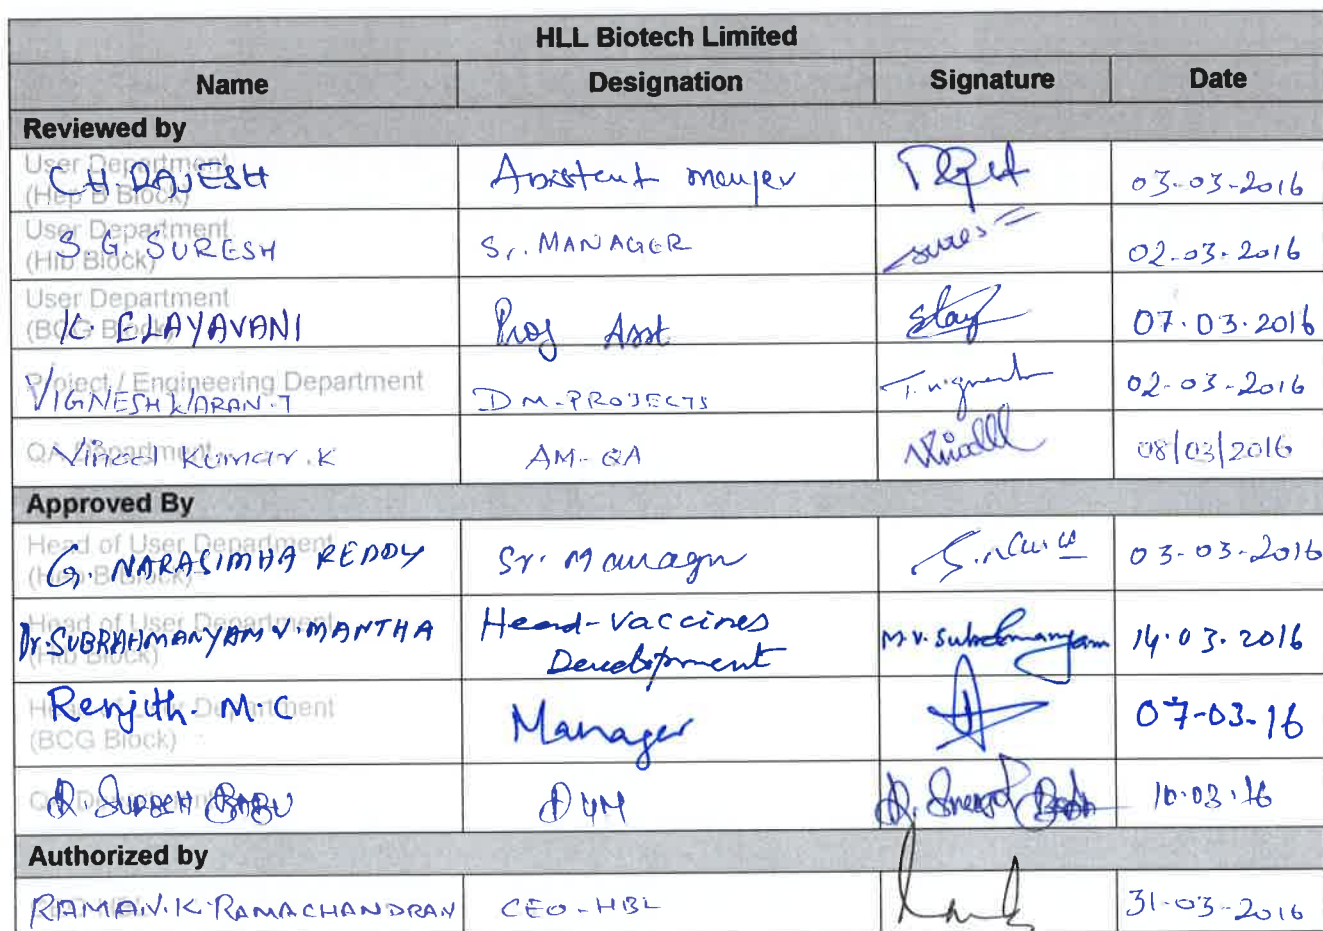 HLL Biotech Limited
Name Designation Signature Date
Reviewed by
User Department
(Hep B Block)
CH. RAJESH Assistant manager 03-03-2016
User Department
(Hib Block)
S. G. SURESH Sr. MANAGER Sures 02-03-2016
User Department
(BCG Block)
K. ELAYAVANI Proj Asst 07.03.2016
Project / Engineering Department
VIGNESHWARAN.T DM-PROJECTS T. Vignesh 02-03-2016
QA Department
Vinod Kumar.K AM-QA 08/03/2016
Approved By
Head of User Department
(Hep B Block)
G. NARASIMHA REDDY Sr. Manager 03-03-2016
Head of User Department
(Hib Block)
Dr. SUBRAHMANYAM V. MANTHA Head-Vaccines
Development M.V. Subrahmanyam 14.03.2016
Head of User Department
(BCG Block)
Renjith. M.C Manager 07-03-16
QA Department
D. SURESH BABU DYM D. Suresh Babu 10.03.16
Authorized by
RAMAN.K.RAMACHANDRAN CEO-HBL 31-03-2016